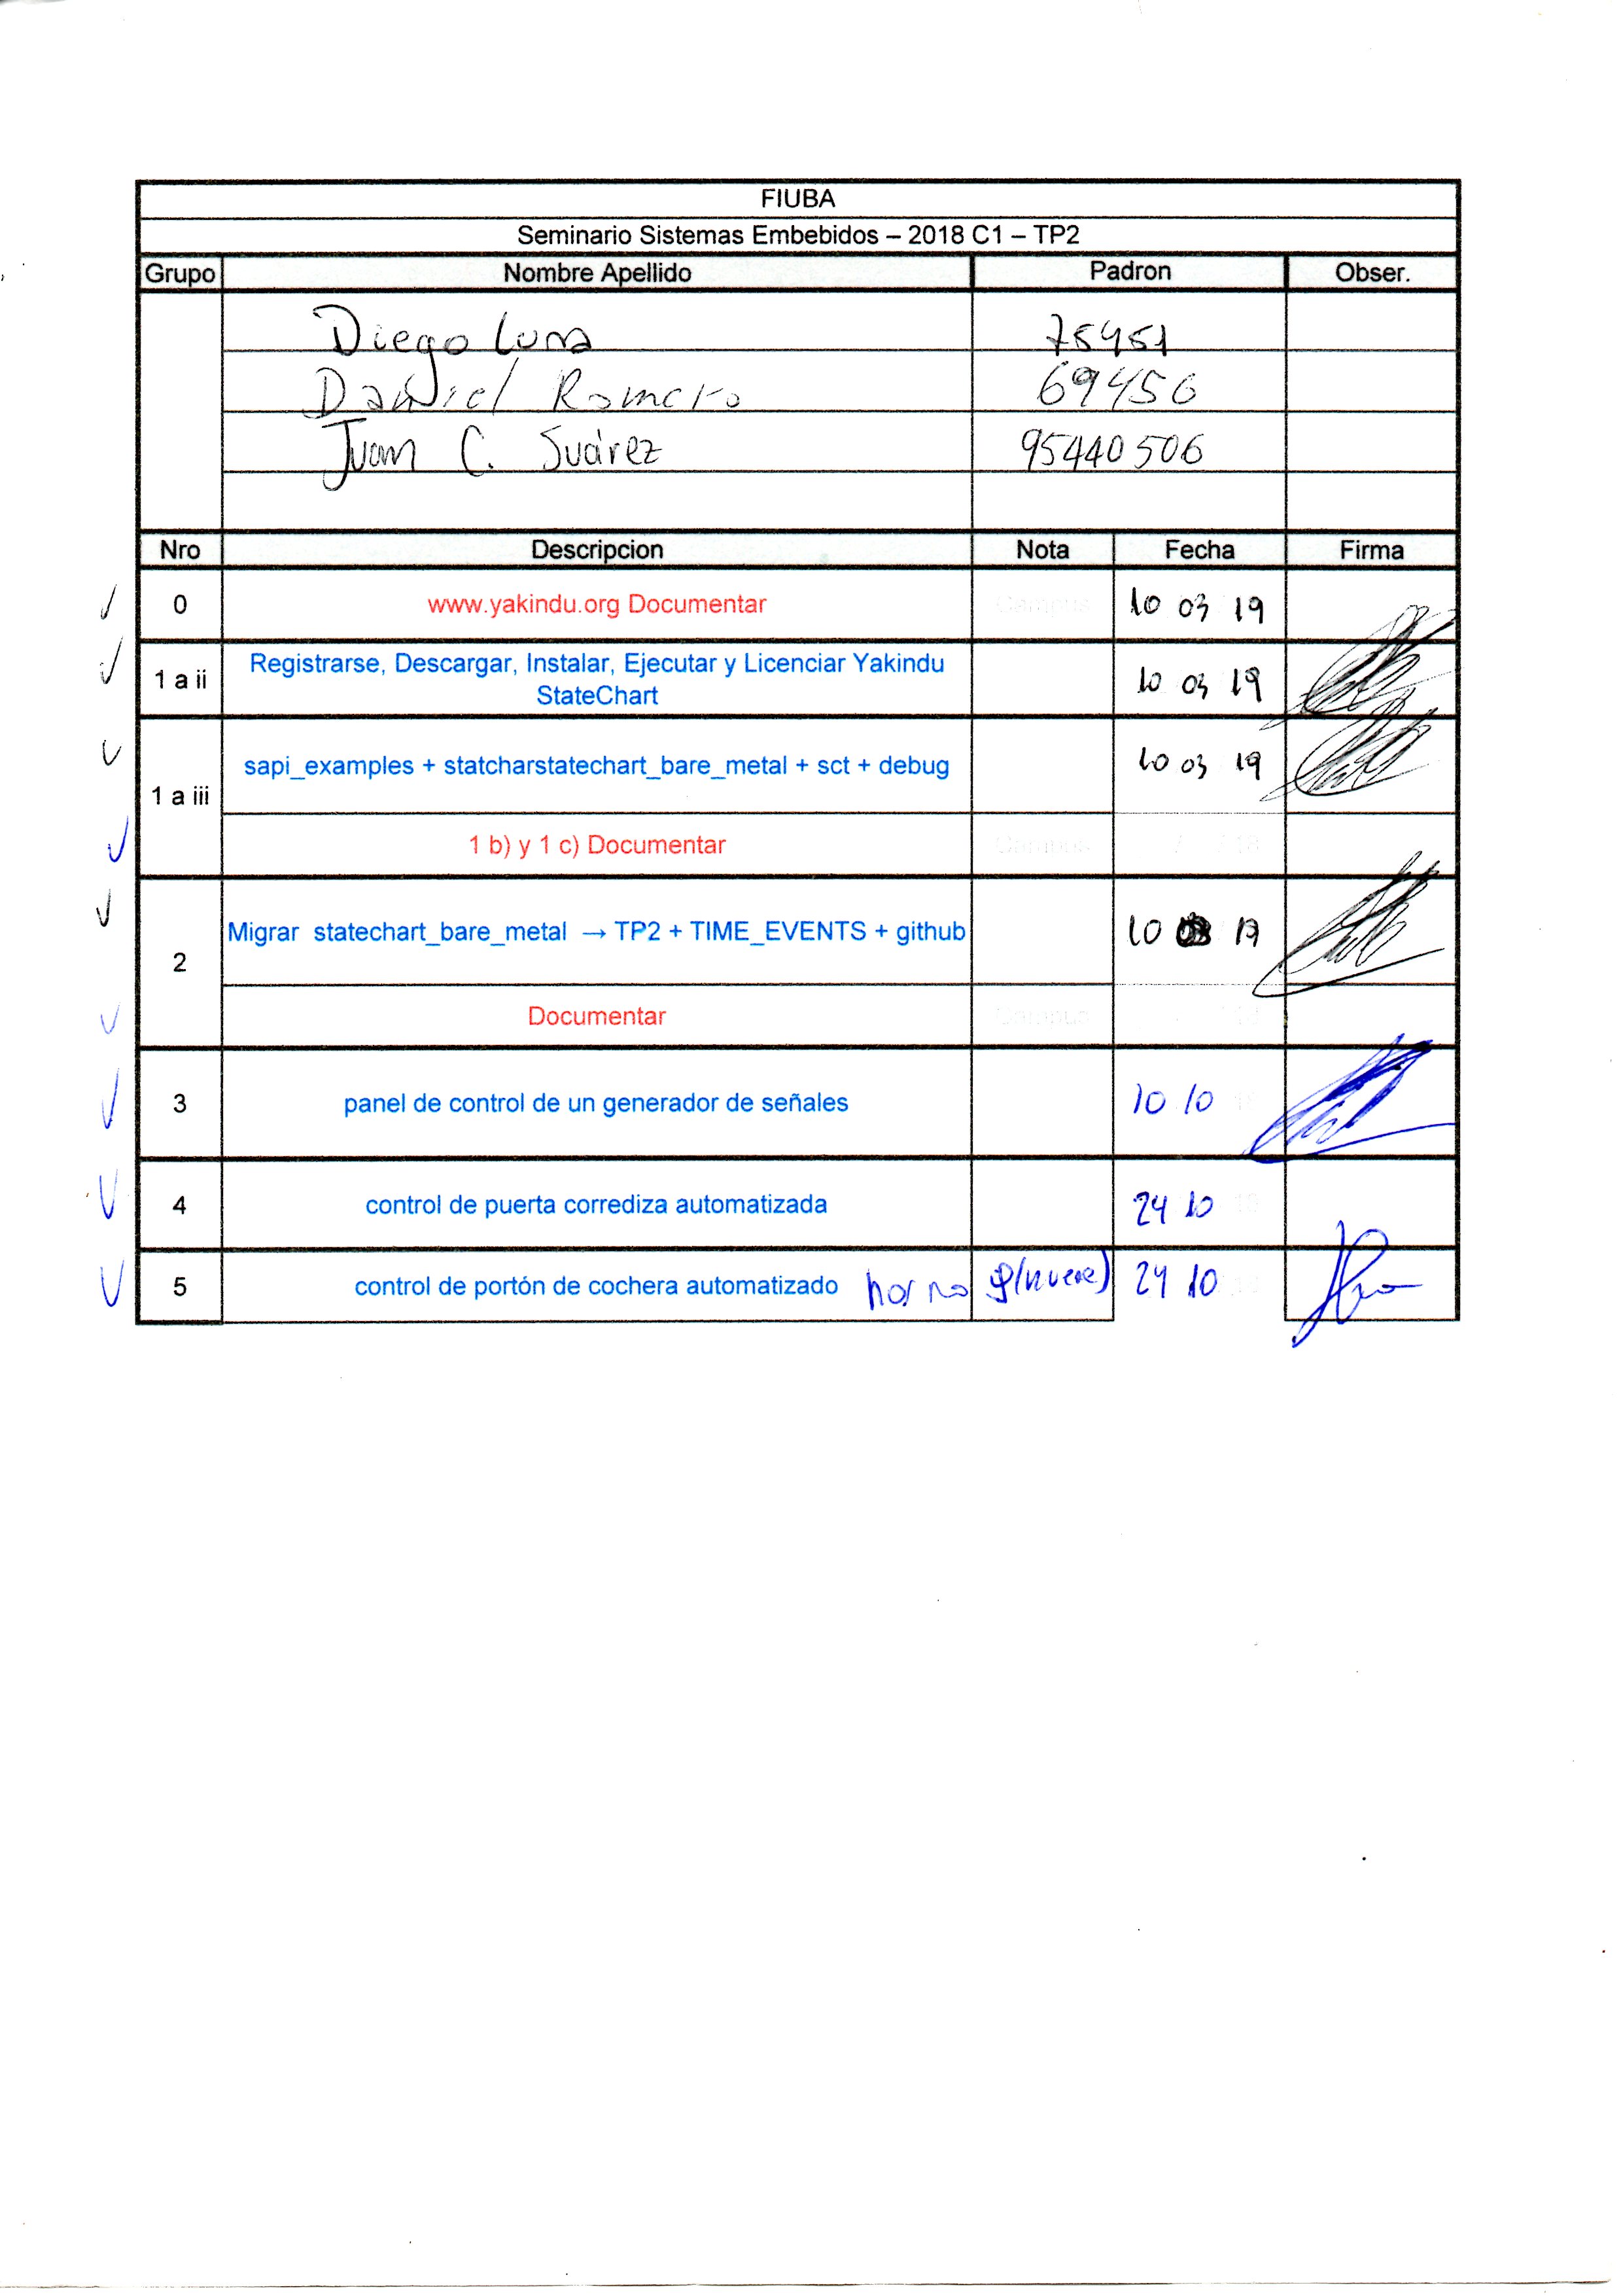 FIUBA
Seminario Sistemas Embebidos – 2018 C1 – TP2
Grupo Nombre Apellido Padron Obser.
Diego Luna 75451
Daniel Romero 69456
Juan C. Suárez 95440506
Nro Descripcion Nota Fecha Firma
0 www.yakindu.org Documentar Campus 10 03 19
1 a ii Registrarse, Descargar, Instalar, Ejecutar y Licenciar Yakindu
StateChart 10 03 19
1 a iii sapi_examples + statcharstatechart_bare_metal + sct + debug 10 03 19
1 b) y 1 c) Documentar Campus / / 18
2 Migrar statechart_bare_metal → TP2 + TIME_EVENTS + github 10 03 19
Documentar Campus
3 panel de control de un generador de señales 10 10
4 control de puerta corrediza automatizada 24 10
5 control de portón de cochera automatizado horno 9 (nueve) 24 10